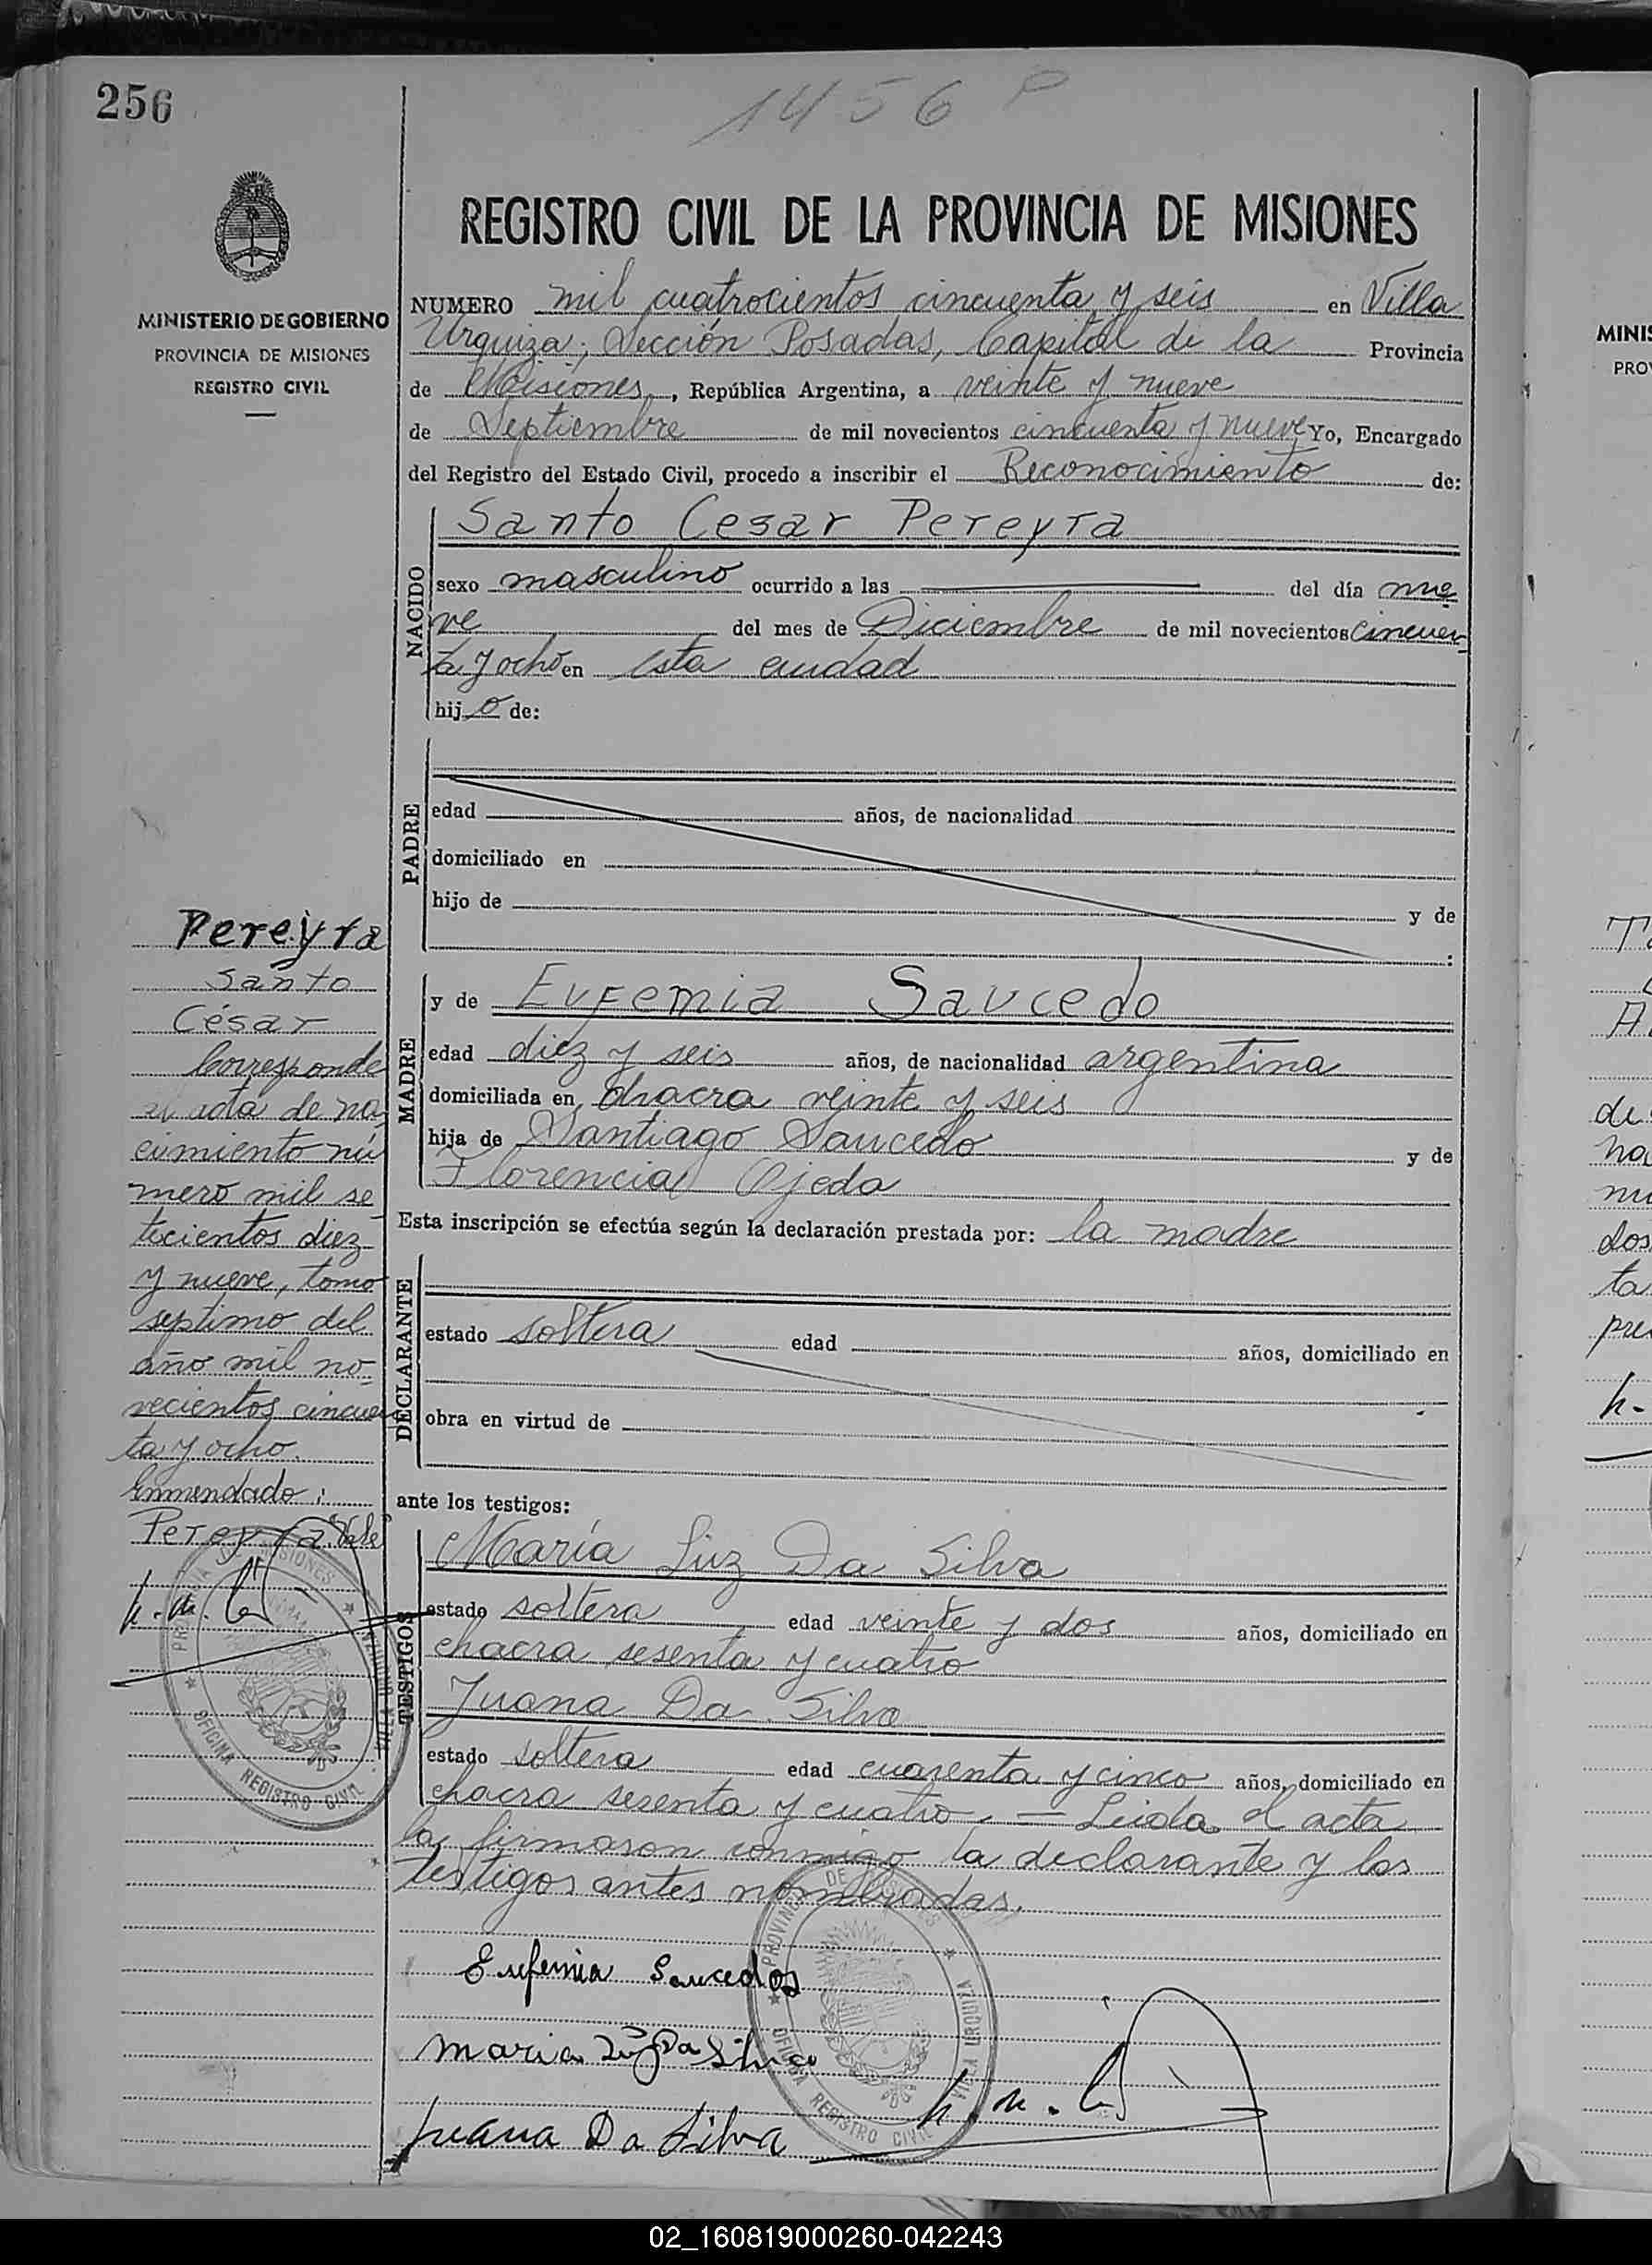 256
1456 P
MINISTERIO DE GOBIERNO
PROVINCIA DE MISIONES
REGISTRO CIVIL
REGISTRO CIVIL DE LA PROVINCIA DE MISIONES
NUMERO mil cuatrocientos cincuenta y seis en Villa
Urquiza; Sección Posadas, Capital de la Provincia
de Misiones, República Argentina, a veinte y nueve
de Septiembre de mil novecientos cincuenta y nueve Yo, Encargado
del Registro del Estado Civil, procedo a inscribir el Reconocimiento de:
NACIDO
Santo Cesar Pereyra
sexo masculino ocurrido a las del día nue
ve del mes de Diciembre de mil novecientos cincuen
ta y ocho en esta ciudad
hijo de:
PADRE
edad años, de nacionalidad
domiciliado en
hijo de y de
:
MADRE
y de Eufemia Saucedo
edad diez y seis años, de nacionalidad argentina
domiciliada en chacra veinte y seis
hija de Santiago Saucedo y de
Florencia Ojeda
Esta inscripción se efectúa según la declaración prestada por: la madre
DECLARANTE
estado soltera edad años, domiciliado en
obra en virtud de
ante los testigos:
TESTIGOS
María Luz Da Silva
estado soltera edad veinte y dos años, domiciliado en
chacra sesenta y cuatro
Juana Da Silva
estado soltera edad cuarenta y cinco años, domiciliado en
chacra sesenta y cuatro. — Leida el acta
la firmaron conmigo la declarante y los
testigos antes nombradas.
Eufemia Saucedos
Maria Luz Da Silva
Juana Da Silva
PROVINCIA DE MISIONES
OFICINA REGISTRO CIVIL
VILLA URQUIZA
Pereyra
Santo
César
Corresponde
al acta de na
cimiento nú
mero mil se
tecientos diez
y nueve, tomo
septimo del
año mil no
vecientos cincuen
ta y ocho.
Enmendado:
Pereyra Vale
PROVINCIA DE MISIONES
OFICINA REGISTRO CIVIL
VILLA URQUIZA
MINIS
PRO
02_160819000260-042243